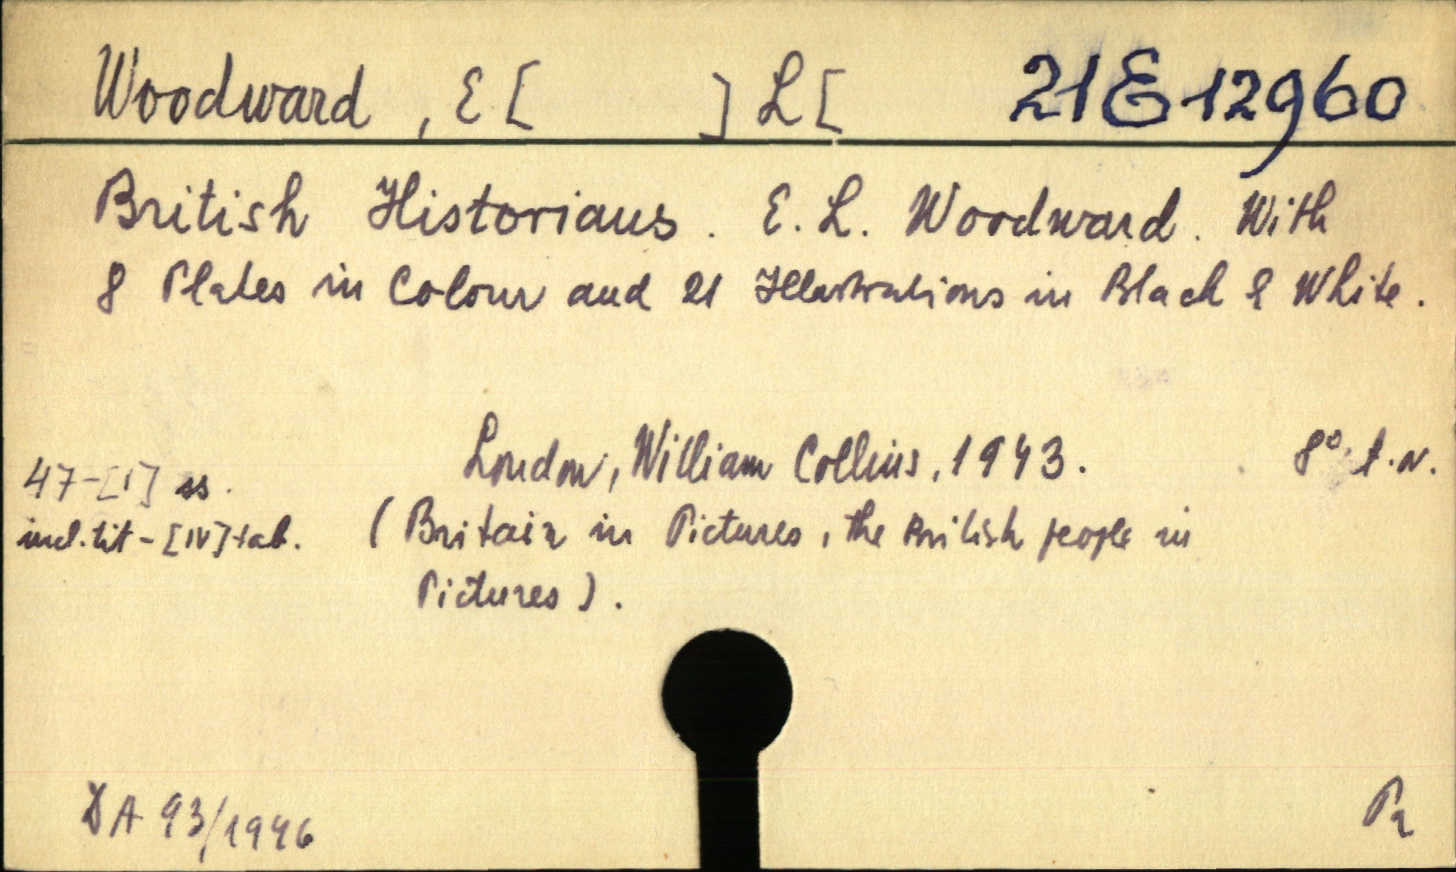 Woodward, E[ ] L[ 21E12960
British Historians. E. L. Woodward. With
8 Plates in Colour and 21 Illustrations in Black & White.
London, William Collins, 1943. 8° t.n.
47-[1] ss.
incl. tit - [IV] tab. (Britain in Pictures, the British people in
Pictures).
DA 93/1946
Pr